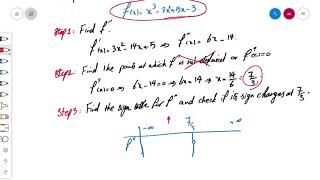 f(x) = x³ - 7x² + 5x - 3.
Step 1: Find f''.
f'(x) = 3x² - 14x + 5 ⇒ f''(x) = 6x - 14.
Step 2: Find the points at which f'' is not defined or f''(x) = 0
f''(x) = 0 ⇒ 6x - 14 = 0 ⇒ x = 14/6 = 7/3.
Step 3: Find the sign table for f'' and check if its sign changes at 7/3.
-∞ 7/3 +∞
f'' 0